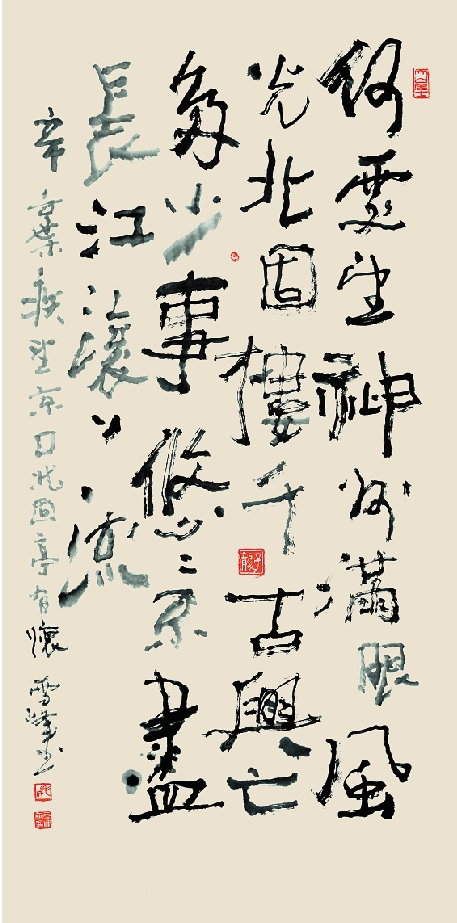 何處望神州滿眼風
光北固樓千古興亡
多少事悠〻不盡
長江滾〻流
辛棄疾登京口北固亭有懷 雪峰书